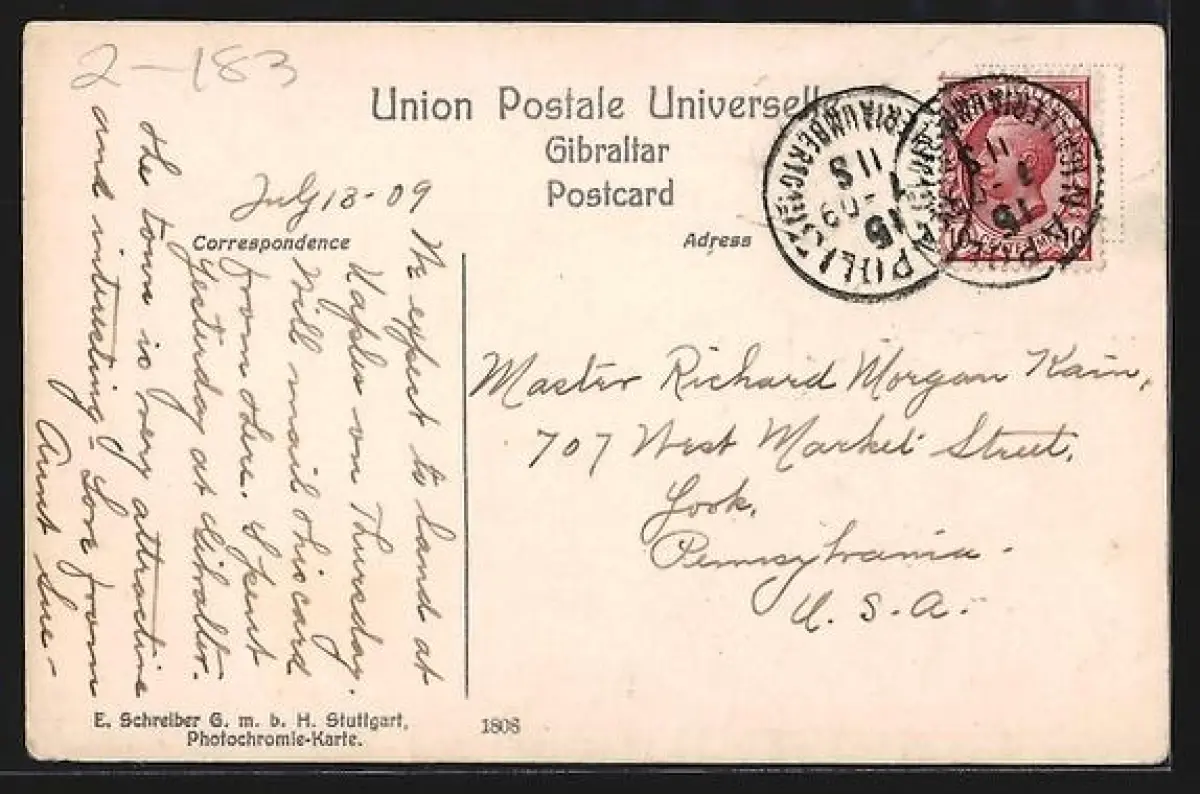 2-183
Union Postale Universelle
Gibraltar
Postcard
July 13-09
Correspondence
Adress
We expect to land at
Naples on Thursday.
Will mail this card
from there. Spent
Yesterday at Gibralter.
the town is very attractive
and interesting - Love from
Aunt Sue -
Master Richard Morgan Kain,
707 West Market Street,
York,
Pennsylvania -
U.S.A.
NAPOLI
GALLERIA UMBERTO
15
7-09
11 S
NAPOLI
15
11 S
10
E. Schreiber G. m. b. H. Stuttgart.
Photochromie-Karte.
1806